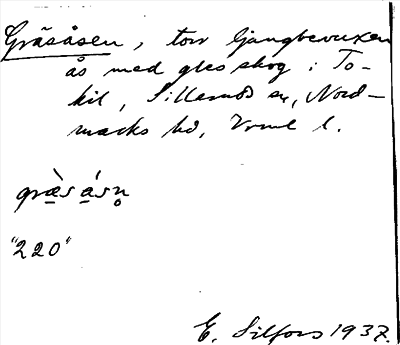 Gräsåsen, torr ljungbevuxen
ås med gles skog i Tö-
kil, Silleruds sn, Nord-
marks hd, Vrml l.
græ̀sásn̥
"220"
E. Silfors 1937.